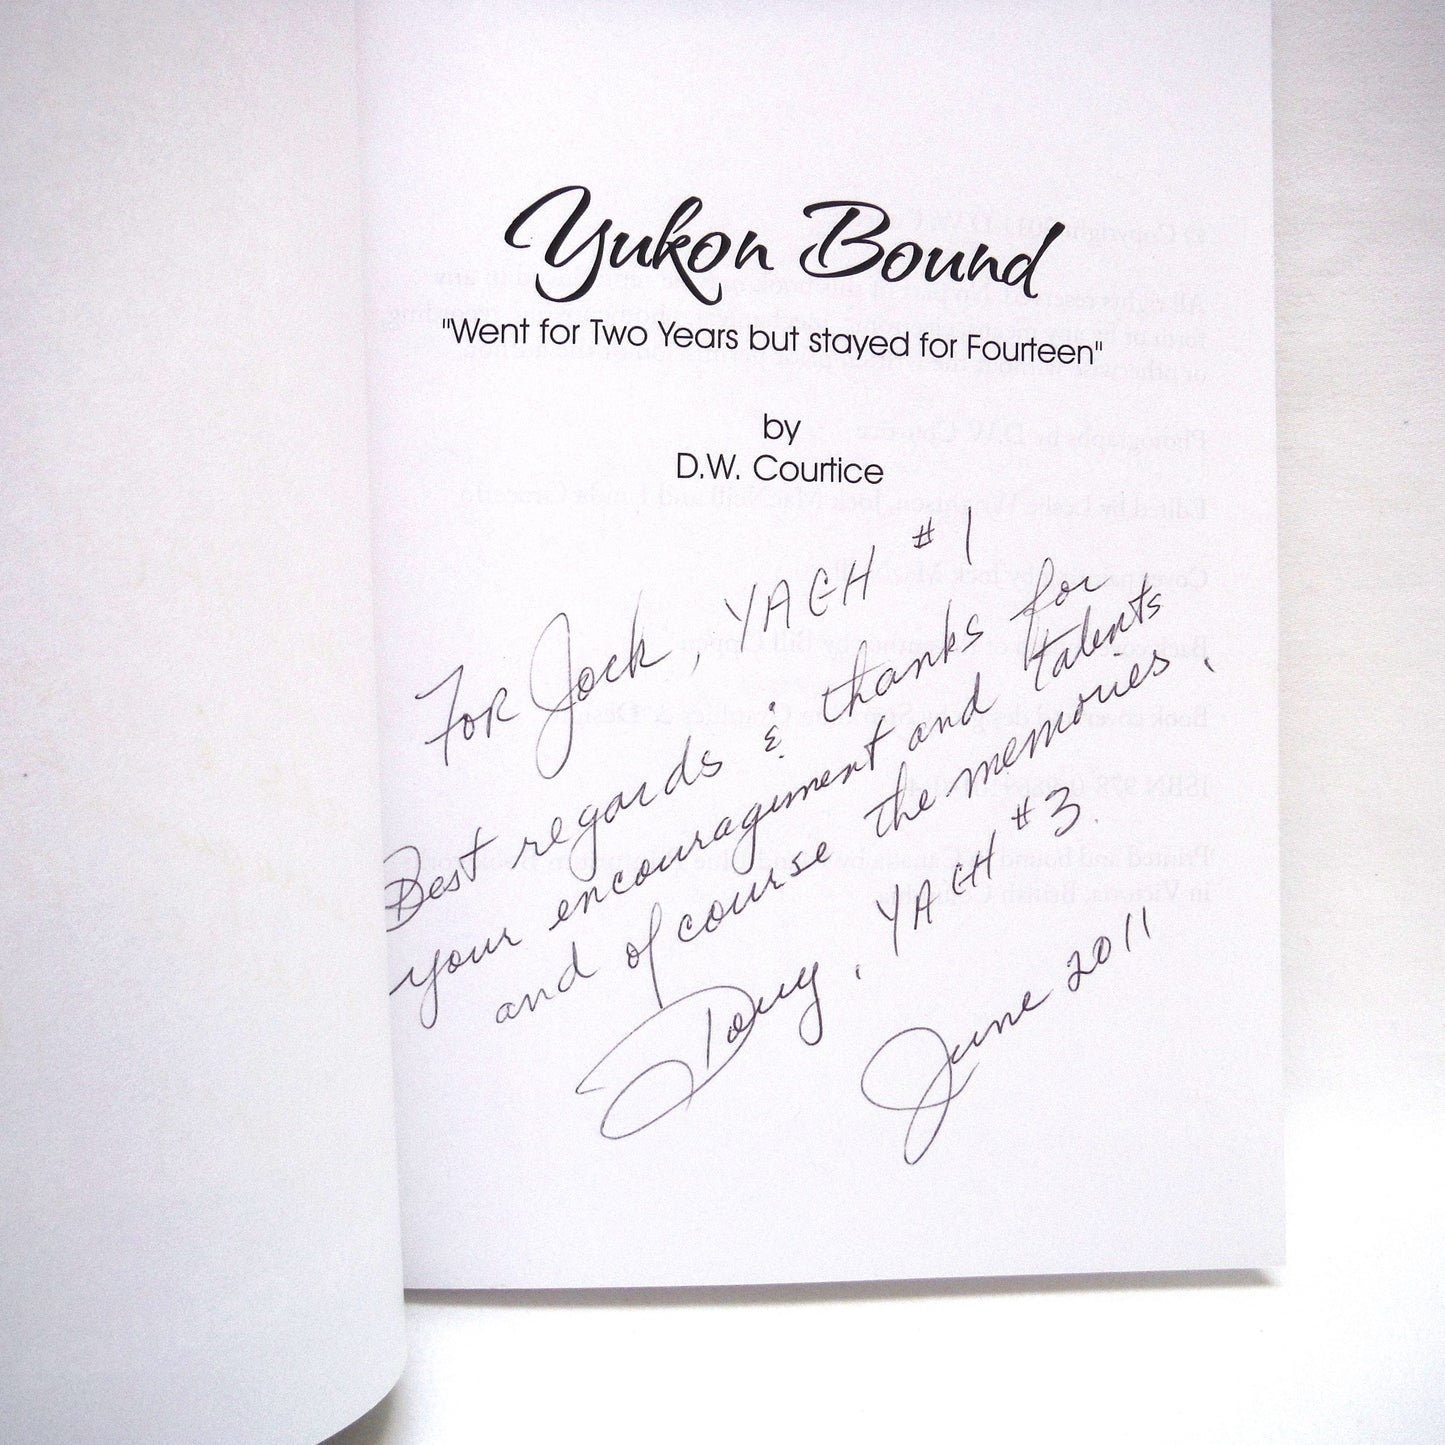 Yukon Bound
"Went for Two Years but stayed for Fourteen"
by
D.W. Courtice
For Jock, YAEH #1
Best regards & thanks for
your encouragement and talents
and of course the memories.
Doug, YAEH #3.
June 2011